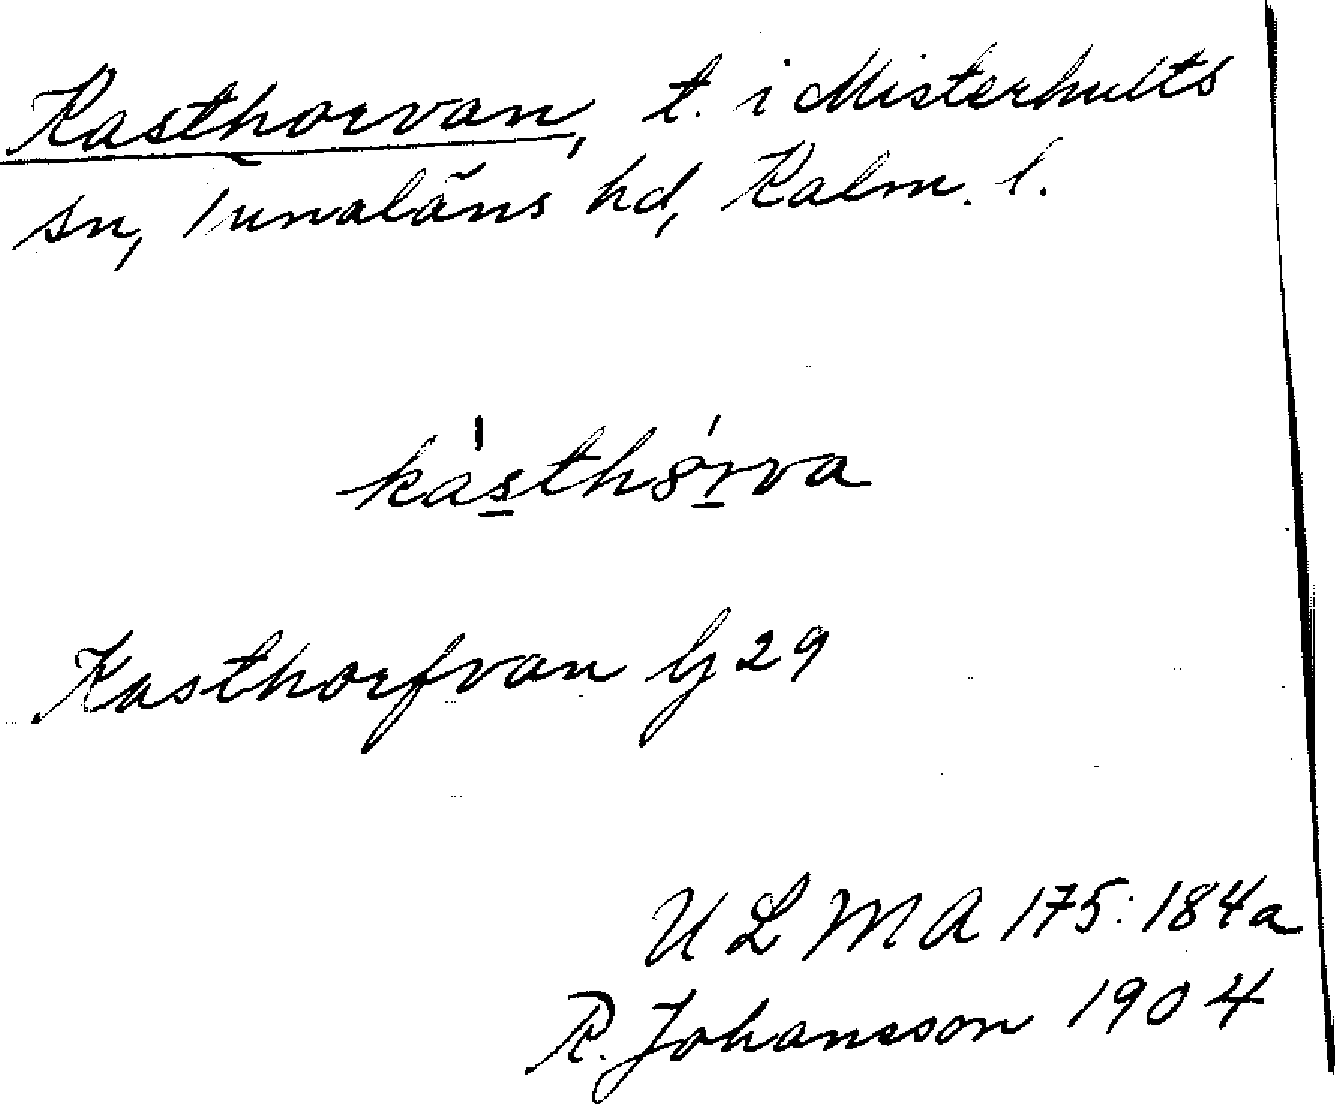 Kasthorvan, t. i Misterhults
sn, Tunaläns hd, Kalm. l.
kasthørva
Kasthorfvan G 29
ULMA 175:184a
R. Johansson 1904